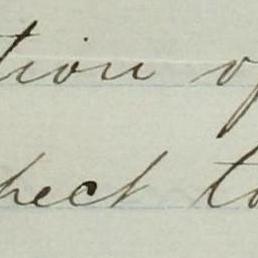 tion of
pect to